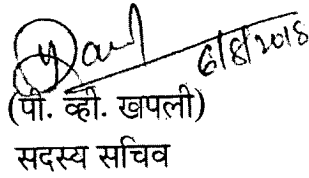 6/8/2018
(पी. व्ही. खपली)
सदस्य सचिव